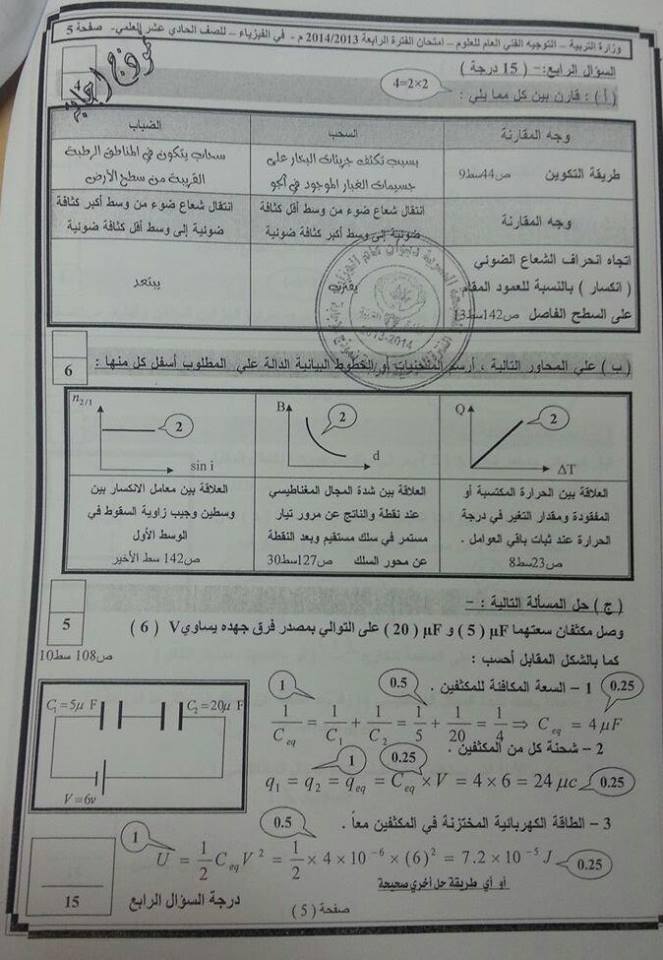 وزارة التربية – التوجيه الفني العام للعلوم – امتحان الفترة الرابعة 2014/2013 م - في الفيزياء – للصف الحادي عشر العلمي- صفحة 5
نموذج إجابة
السؤال الرابع:- ( 15 درجة )
4=2×2
( أ ) : قارن بين كل مما يلي :
وجه المقارنة السحب الضباب
طريقة التكوين ص44سط9
بسبب تكثف جزيئات البخار على جسيمات الغبار الموجود في الجو
سحاب يتكون في المناطق الرطبة القريبة من سطح الأرض
وجه المقارنة
انتقال شعاع ضوء من وسط أقل كثافة ضوئية إلى وسط أكبر كثافة ضوئية
انتقال شعاع ضوء من وسط أكبر كثافة ضوئية إلى وسط أقل كثافة ضوئية
اتجاه انحراف الشعاع الضوئي
( انكسار ) بالنسبة للعمود المقام
على السطح الفاصل ص142سط13
يقترب
يبتعد
2013-2014
6
( ب ) علي المحاور التالية ، أرسم المنحنيات أو الخطوط البيانية الدالة علي المطلوب أسفل كل منها :
Q 2 ΔT
B 2 d
n2/1 2 sin i
العلاقة بين الحرارة المكتسبة أو
المفقودة ومقدار التغير في درجة
الحرارة عند ثبات باقي العوامل .
ص23سط8
العلاقة بين شدة المجال المغناطيسي
عند نقطة والناتج عن مرور تيار
مستمر في سلك مستقيم وبعد النقطة
عن محور السلك ص127سط30
العلاقة بين معامل الانكسار بين
وسطين وجيب زاوية السقوط في
الوسط الأول
ص142 سط الأخير
5
( ج ) حل المسألة التالية : -
وصل مكثفان سعتهما µF ( 5 ) و µF ( 20 ) على التوالي بمصدر فرق جهده يساوي V ( 6 )
كما بالشكل المقابل أحسب :
ص108 سط10
1 – السعة المكافئة للمكثفين .
1 0.5 0.25
1/Ceq = 1/C1 + 1/C2 = 1/5 + 1/20 = 1/4 ⇒ Ceq = 4 µF
C1=5µ F C2=20µ F
V=6v
2 – شحنة كل من المكثفين .
1 0.25
q1 = q2 = qeq = Ceq × V = 4 × 6 = 24 µc 0.25
3 – الطاقة الكهربائية المختزنة في المكثفين معاً .
1 0.5
U = 1/2 Ceq V² = 1/2 × 4 × 10⁻⁶ × (6)² = 7.2 × 10⁻⁵ J 0.25
أو أي طريقة حل أخري صحيحة
15
درجة السؤال الرابع
صفحة ( 5 )